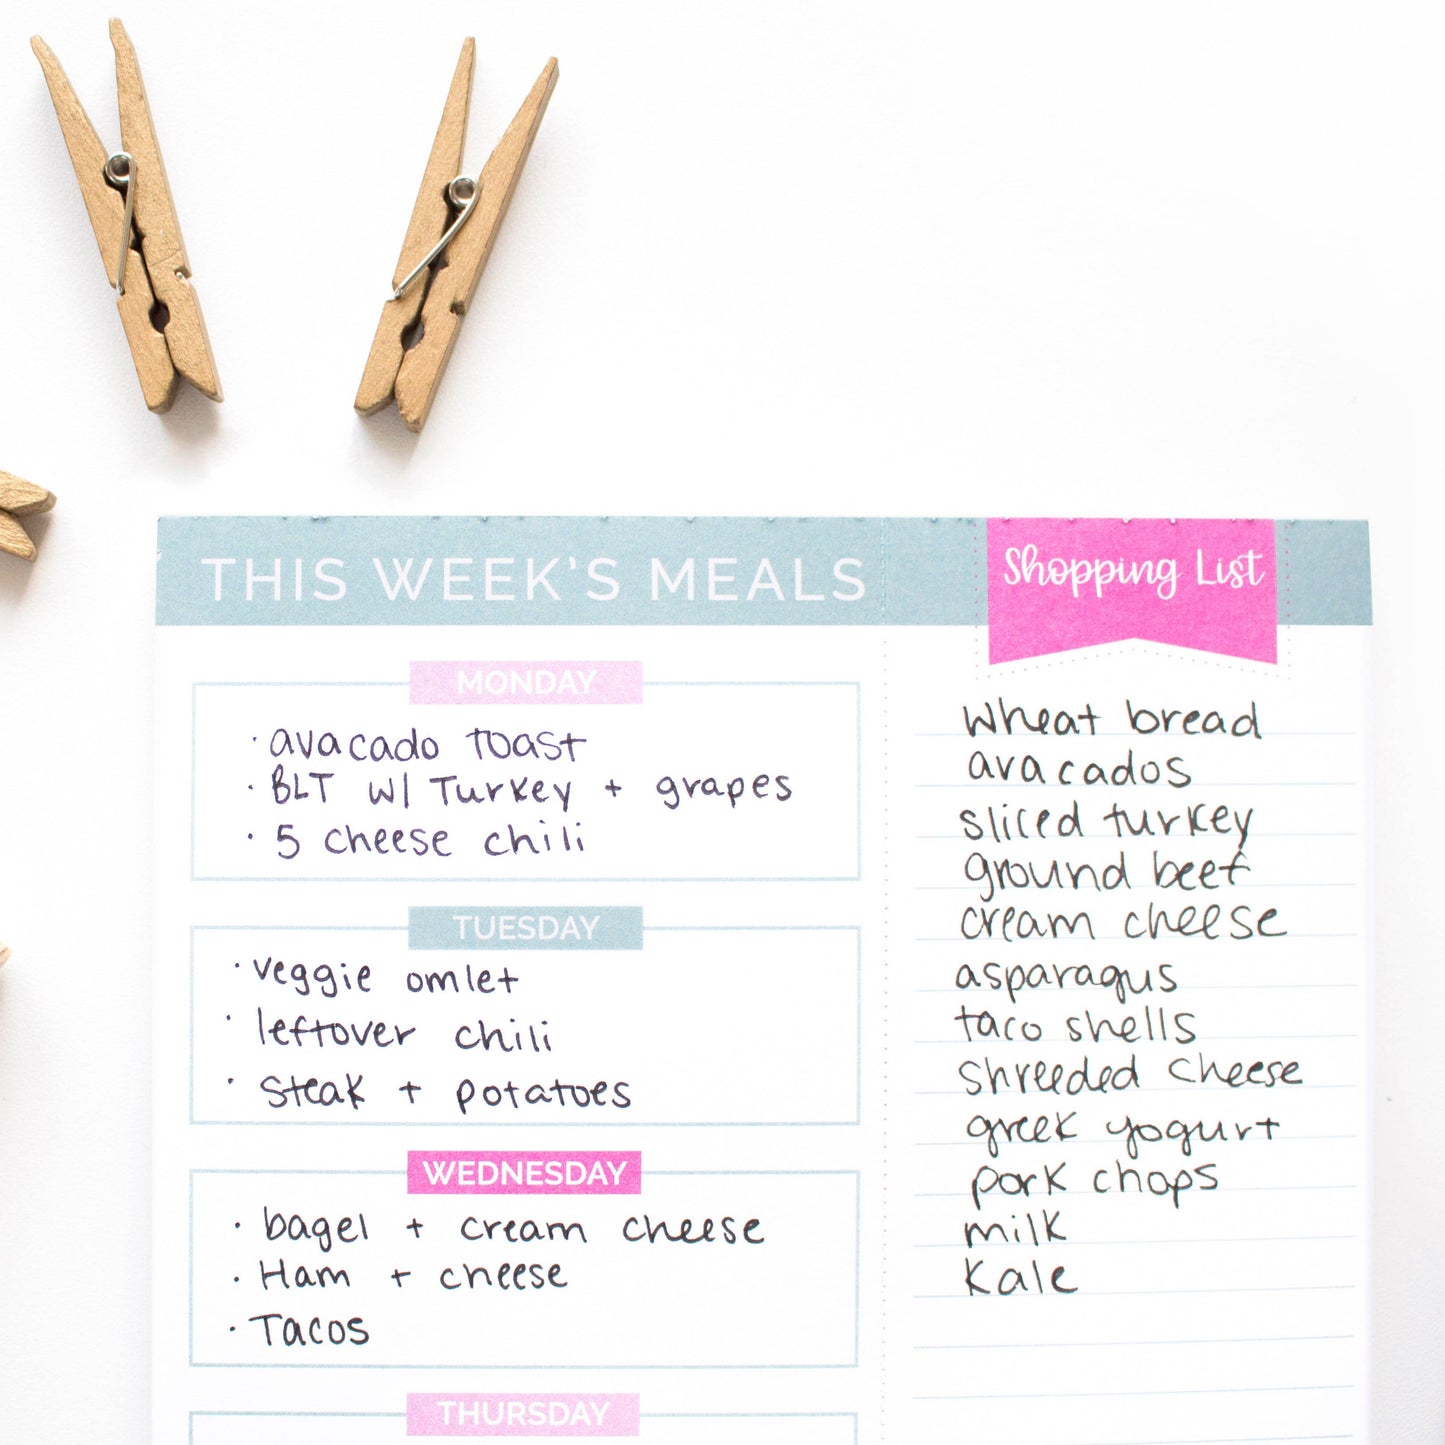 THIS WEEK'S MEALS
MONDAY
· avacado toast
· BLT w/ Turkey + grapes
· 5 cheese chili
TUESDAY
· veggie omlet
· leftover chili
· steak + potatoes
WEDNESDAY
· bagel + cream cheese
· Ham + cheese
· Tacos
THURSDAY
Shopping List
wheat bread
avacados
sliced turkey
ground beef
cream cheese
asparagus
taco shells
shreeded cheese
greek yogurt
pork chops
milk
kale